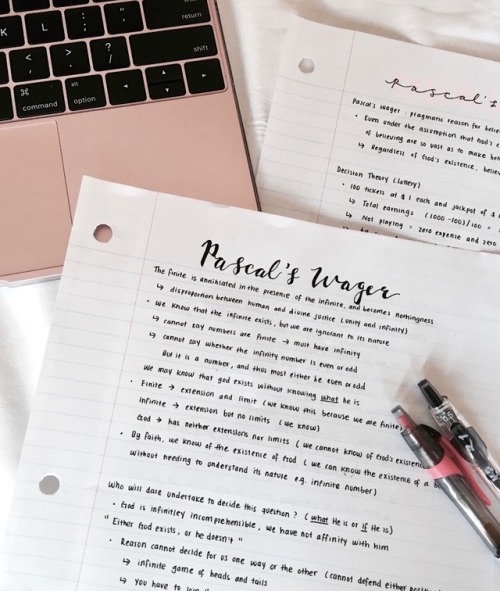 K
L
:
;
"
'
return
<
,
>
.
?
/
shift
⌘
command
alt
option
Pascal's
Pascal's wager : pragmatic reason for
• Even under the assumption that God's
of believing are so vast as to make
↳ Regardless of God's existence,
Decision Theory (lottery)
• 100 tickets at $1 each and jackpot of $
↳ Total earnings (1000-100)/100 =
↳ Not playing = zero expense and zero
Pascal's Wager
The finite is annihilated in the presence of the infinite, and becomes nothingness
↳ disproportion between human and divine justice (unity and infinity)
• We know that the infinite exists, but we are ignorant to its nature
↳ cannot say numbers are finite → must have infinity
↳ cannot say whether the infinity number is even or odd
But it is a number, and thus most either be even or odd
We may know that god exists without knowing what he is
• Finite → extension and limit (we know this because we are finite)
Infinite → extension but no limits (we know)
God → has neither extensions nor limits (we cannot know of God's
• By faith, we know of the existence of God (we can know the existence of a
without needing to understand its nature e.g. infinite number)
Who will dare undertake to decide this question? (what He is or if He is)
• God is infinitley incomprehensible, we have not affinity with him
"Either God exists, or he doesn't"
• Reason cannot decide for us one way or the other (cannot defend either
↳ infinite game of heads and tails
↳ you have to